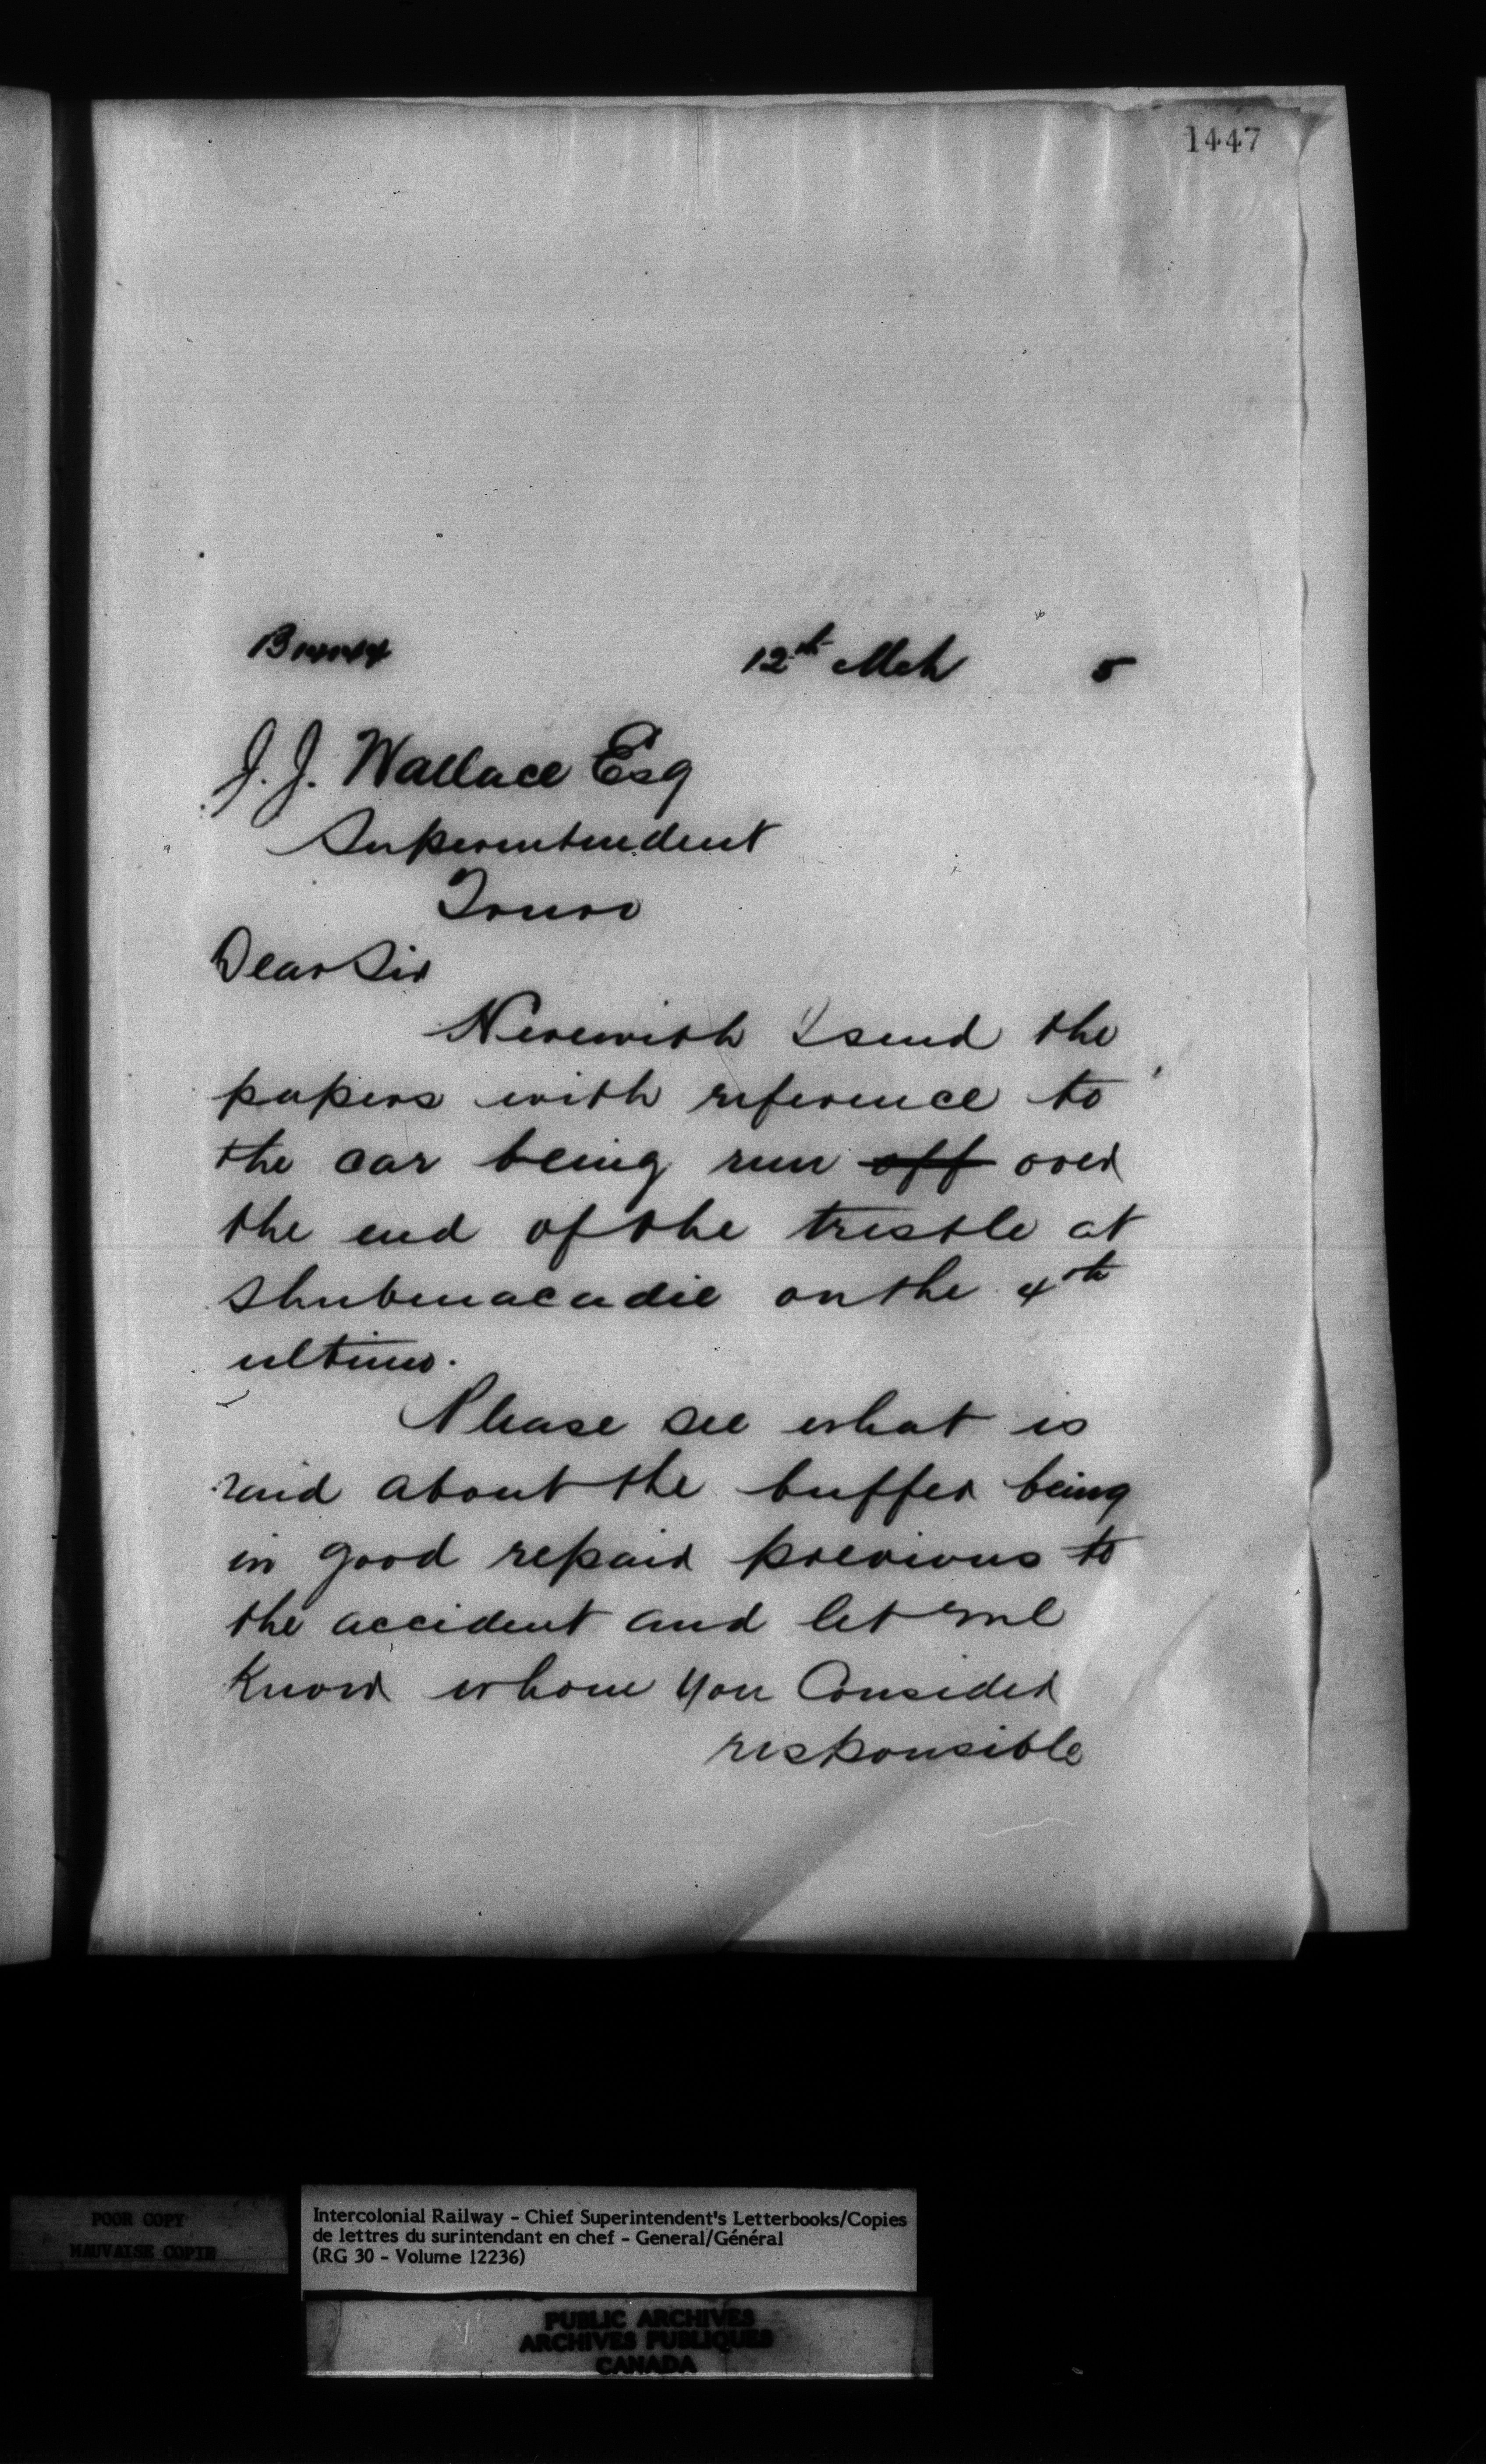 1447
12th Mch 5
J. J. Wallace Esq
Superintendent
Truro
Dear Sir
Herewith I send the
papers with reference to
the car being run off over
the end of the trestle at
Shubenacadie on the 4th
ultimo.
Please see what is
said about the buffer being
in good repair previous to
the accident and let me
know whom you Consider
responsible
POOR COPY
MAUVAISE COPIE
Intercolonial Railway - Chief Superintendent's Letterbooks/Copies
de lettres du surintendant en chef - General/Général
(RG 30 - Volume 12236)
PUBLIC ARCHIVES
ARCHIVES PUBLIQUES
CANADA